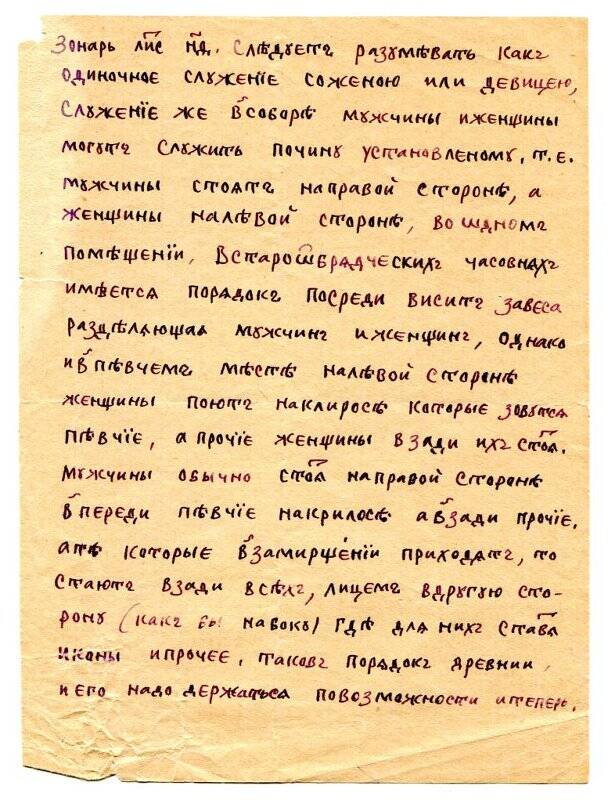 Зонарь лис н҃д. Слѣдуетъ разумѣвать какъ
одиночное служенїе соженою или девицею,
Служенїе же в соборѣ мужчины иженщины
могутъ служить почину установленому, т.е.
мужчины стоятъ направой сторонѣ, а
женщины налѣвой сторонѣ, во ѡдномъ
помѣщенїи, встароѡбрядческихъ часовняхъ
имѣется порядокъ посреди виситъ завеса
раздѣляющая мужчинъ иженщинъ, однако
ив пѣвчемъ мѣстѣ налѣвой сторонѣ
женщины поютъ наклиросѣ которые зовутся
пѣвчїе, а прочїе женщины взади ихъ стоят.
мужчины обычно стоят направой сторонѣ
впереди пѣвчїе накрилосѣ авзади прочїе.
атѣ которые взамиршенїи приходятъ, то
стаютъ взади всѣхъ, лицемъ вдругую сто-
рону (какъ бы набоку) гдѣ для нихъ ставят
иконы ипрочее, таковъ порядокъ древнии,
и его надо держаться повозможности итеперь.